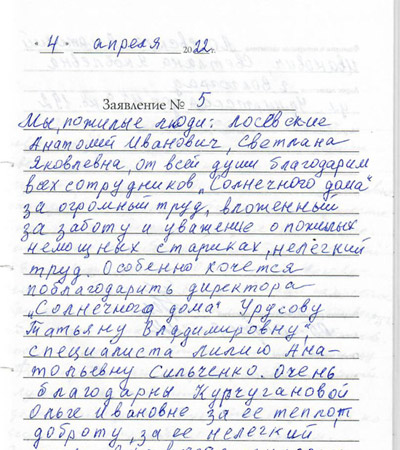 "4" апреля 2022г.
Заявление № 5
Мы, пожилые люди: Лосевские
Анатолий Иванович, Светлана
Яковлевна, от всей души благодарим
всех сотрудников „Солнечного дома"
за огромный труд, вложенный
за заботу и уважение о пожилых
немощных стариках, нелегкий
труд. Особенно хочется
поблагодарить директора
„Солнечного дома" Урусову
Татьяну Владимировну,
специалиста Лилию Ана-
тольевну Сильченко. Очень
благодарны Курчугановой
Ольге Ивановне за ее теплоту,
доброту, за ее нелегкий